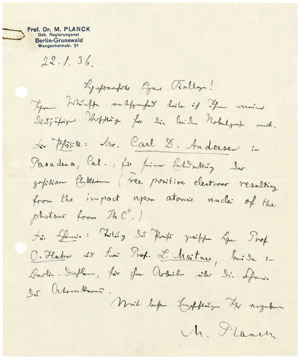 Prof. Dr. M. PLANCK
Geh. Regierungsrat
Berlin-Grunewald
Wangenheimstr. 21
22.1.36.
Hochgeehrter Herr Kollege!
Ihrem Wunsche entsprechend teile ich Ihnen meine
diesjährigen Vorschläge für die beiden Nobelpreise mit.
Für Physik: Mr. Carl D. Anderson in
Pasadena, Cal., für seine Entdeckung des
positiven Elektrons (Free positive electrons resulting
from the impact upon atomic nuclei of the
photons from Th C").
Für Chemie: Teilung des Preises zwischen Herrn Prof.
O. Hahn und Frau Prof. L. Meitner, beide in
Berlin-Dahlem, für ihre Arbeiten über die Chemie
des Atomkerns.
Mit besten Empfehlungen Ihr ergebener
M. Planck